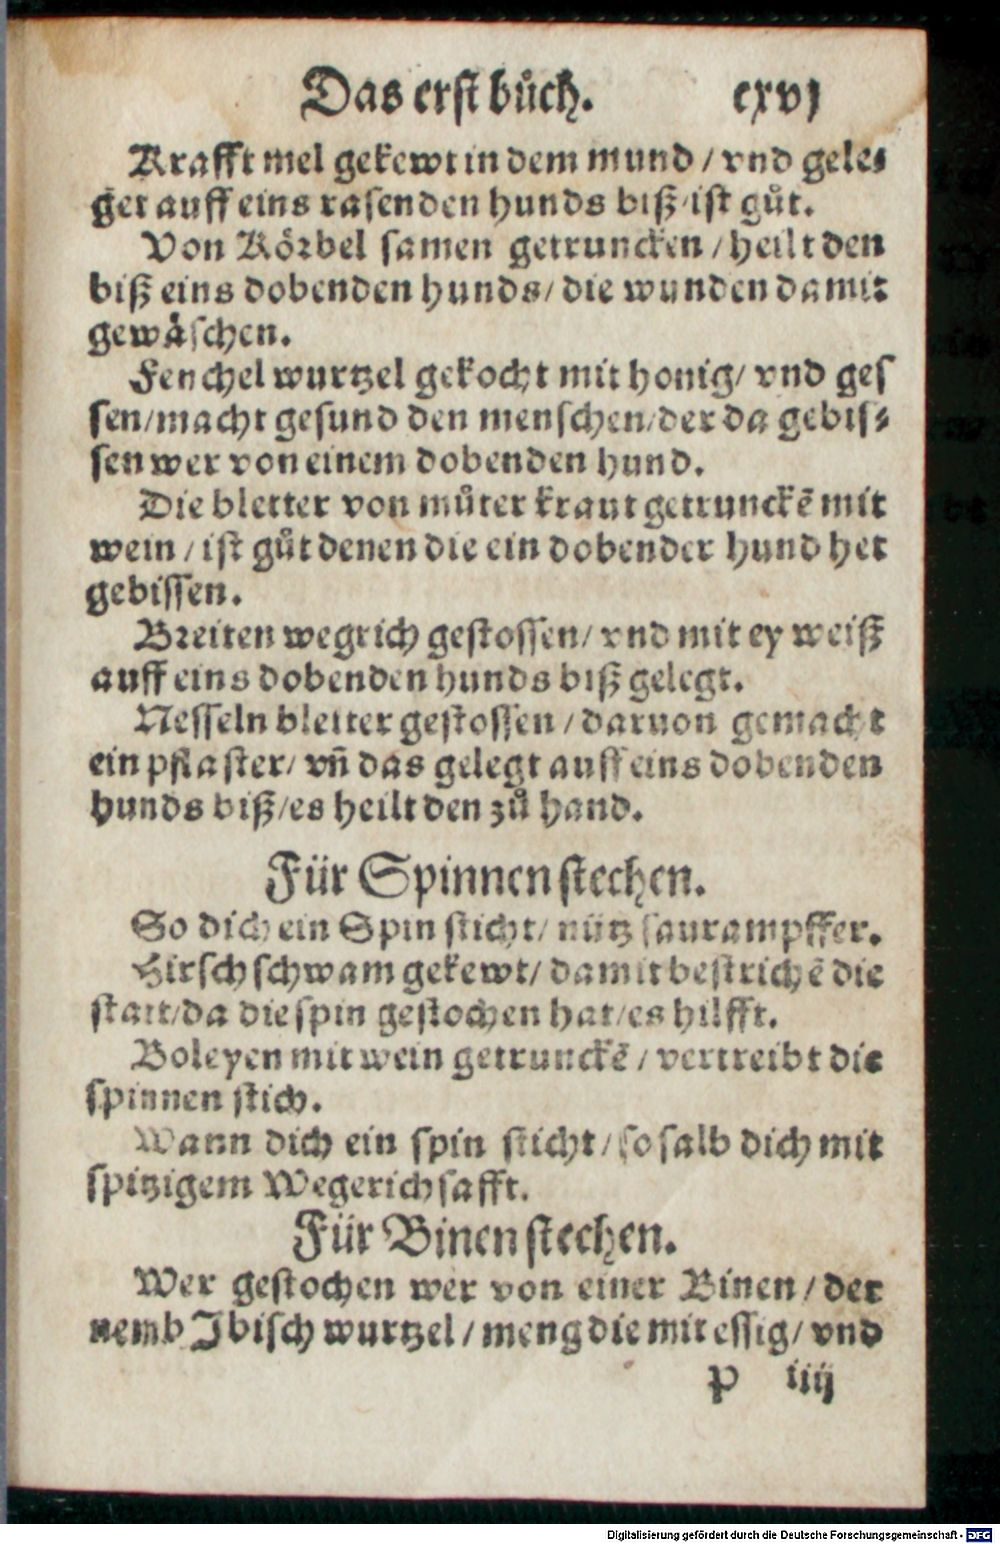 Das erst bůch. cxvj
Krafft mel gekewt in dem mund / vnd gele⸗
get auff eins rasenden hunds biß / ist gůt.
Von Körbel samen getruncken / heilt den
biß eins dobenden hunds / die wunden damit
gewäschen.
Fenchel wurtzel gekocht mit honig / vnd ges
sen / macht gesund den menschen / der da gebis⸗
sen wer von einem dobenden hund.
Die bletter von můter kraut getrunckẽ mit
wein / ist gůt denen die ein dobender hund het
gebissen.
Breiten wegrich gestossen / vnd mit ey weiß
auff eins dobenden hunds biß gelegt.
Nesseln bletter gestossen / daruon gemacht
ein pflaster / vñ das gelegt auff eins dobenden
hunds biß / es heilt den zů hand.
Für Spinnen stechen.
So dich ein Spin sticht / nütz saurampffer.
Hirsch schwam gekewt / damit bestrichẽ die
statt / da die spin gestochen hat / es hilfft.
Boleyen mit wein getrunckẽ / vertreibt die
spinnen stich.
Wann dich ein spin sticht / so salb dich mit
spitzigem Wegerich safft.
Für Binen stechen.
Wer gestochen wer von einer Binen / der
nemb Ibisch wurtzel / meng die mit essig / vnd
P iiij
Digitalisierung gefördert durch die Deutsche Forschungsgemeinschaft - DFG